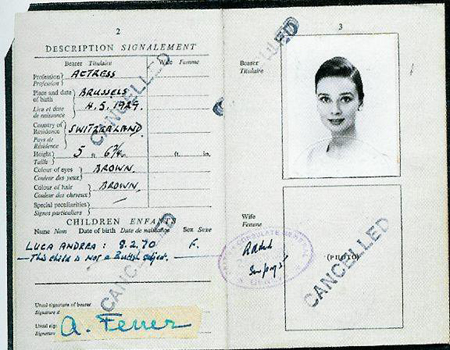 2
DESCRIPTION SIGNALEMENT
Bearer Titulaire Wife Femme
Profession Profession ACTRESS
Place and date of birth BRUSSELS
Lieu et date de naissance 4.5.1929.
Country of Residence SWITZERLAND
Pays de Résidence
Height Taille 5 ft. 6¾ in. ft. in.
Colour of eyes Couleur des yeux BROWN.
Colour of hair Couleur des cheveux BROWN.
Special peculiarities
Signes particuliers
CHILDREN ENFANTS
Name Nom Date of birth Date de naissance Sex Sexe
LUCA ANDREA: 8.2.70 F.
—This child is not a British subject.
Usual signature of bearer
Signature d
Usual sig
Signature d
CANCELLED
CANCELLED
CANCELLED
3
Bearer
Titulaire
Wife
Femme
(PHOTO)
CANCELLED
CANCELLED